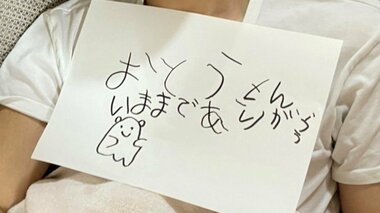 おとうさん
いままでありがとう